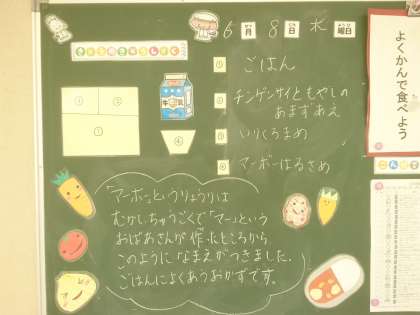 きょうのきゅうしょく
6月8日水曜日
① ごはん
② チンゲンサイともやしの
あまずあえ
③ いりくろまめ
④ マーボーはるさめ
牛乳
「マーボー」というりょうりは
むかしちゅうごくで「マー」という
おばあさんが作ったところから
このようになまえがつきました。
ごはんによくあうおかずです。
よくかんで食べよう
こんだて